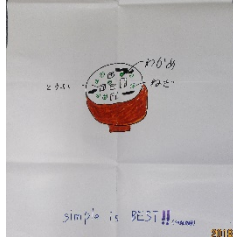 わかめ
とうふ
ねぎ
simple is BEST!!